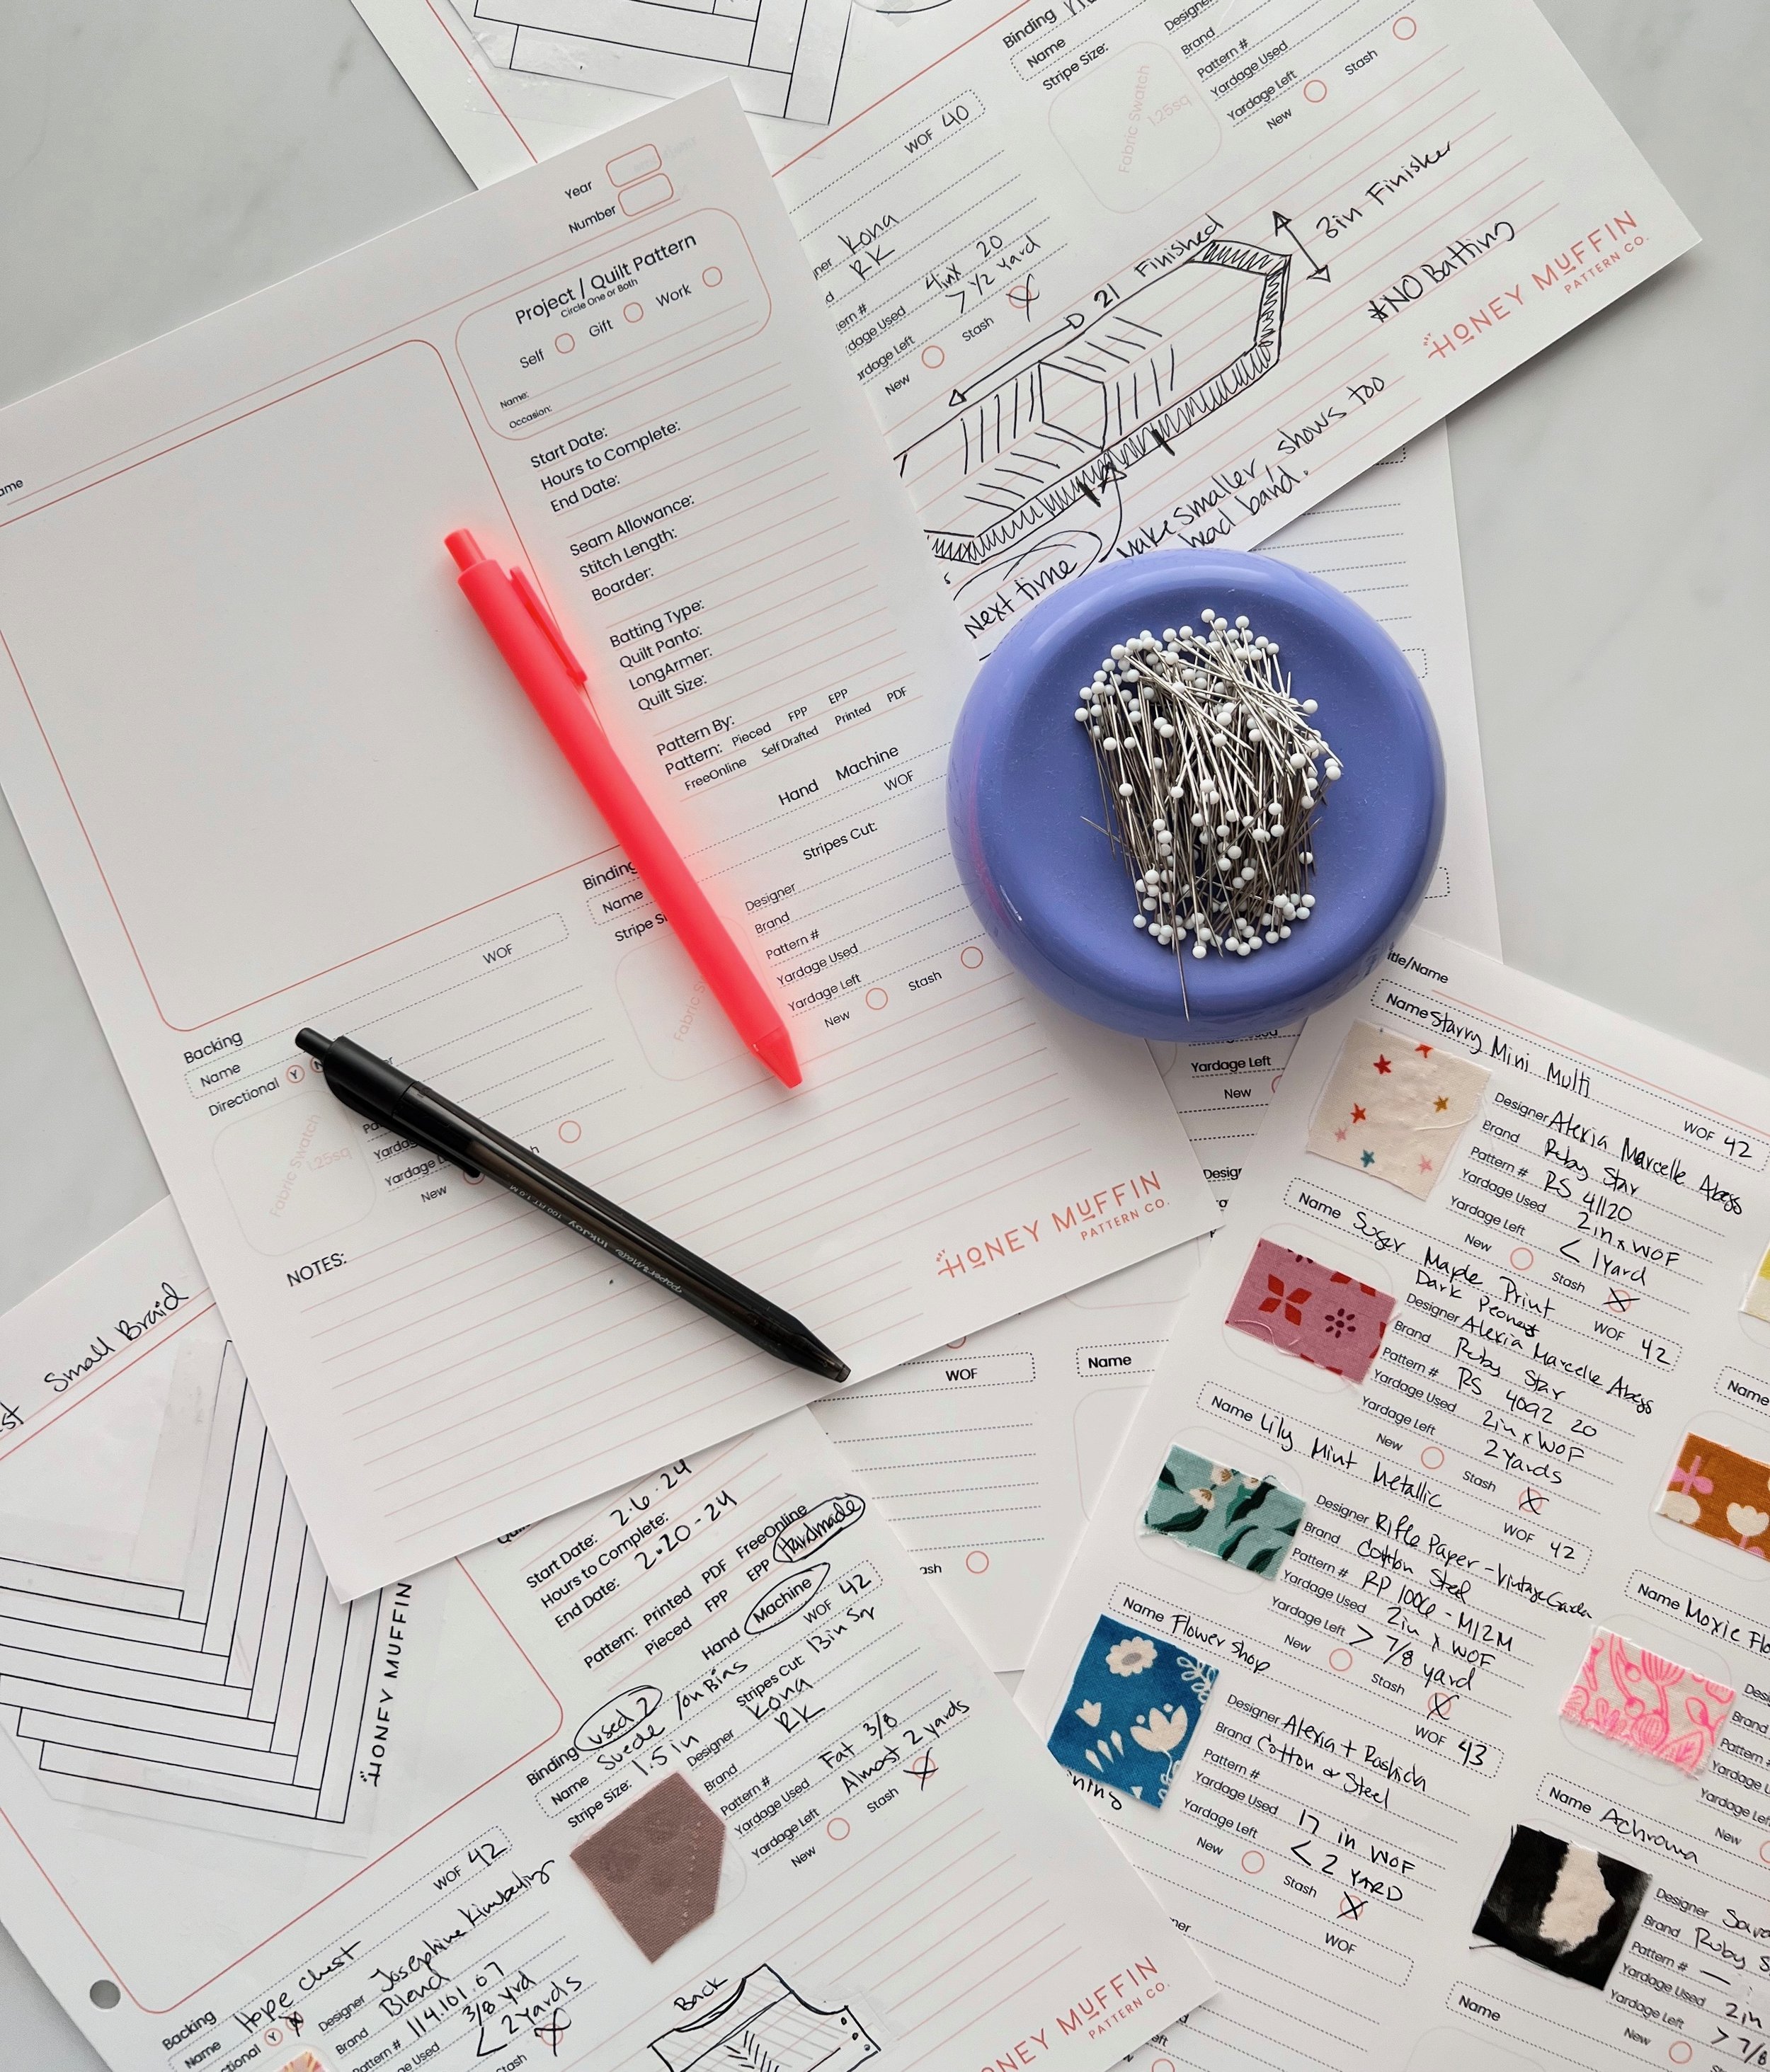 Binding
Name
Stripe Size:
Fabric Swatch
1.25sq
Designer
Brand
Pattern #
Yardage Used
Yardage Left
New
Stash
WOF 40
Kona
RK
4in x 20
Yardage Used
> 1/2 Yard
New
Stash
21 Finished
3in Finisker
*NO Batting
HONEY MUFFIN
PATTERN CO.
Next time make smaller, shows too
head band.
Year
Number
Project / Quilt Pattern
Circle One or Both
Self
Gift
Work
Name:
Occasion:
Start Date:
Hours to Complete:
End Date:
Seam Allowance:
Stitch Length:
Boarder:
Batting Type:
Quilt Panto:
LongArmer:
Quilt Size:
Pattern By:
Pattern: Pieced FPP EPP
FreeOnline Self Drafted Printed PDF
Hand Machine
WOF
Stripes Cut:
Binding
Name
Designer
Brand
Pattern #
Yardage Used
Yardage Left
New
Stash
Backing
WOF
Name
Directional Y
Fabric Swatch
1.25sq
New
NOTES:
HONEY MUFFIN
PATTERN CO.
Yardage Left
New
WOF
Name
Small Braid
HONEY MUFFIN
Start Date: 2.6.24
Hours to Complete:
End Date: 2.20-24
Pattern: Printed PDF FreeOnline
Pieced FPP EPP Handmade
Hand Machine
WOF 42
Binding Used 2
Name Suede /on Bias
Stripe Size: 1.5 in
Stripes Cut: 13in Sq
Designer Kona
Brand RK
Pattern #
Yardage Used Fat 3/8
Yardage Left Almost 2 yards
New
Stash
Backing
WOF 42
Name Hope chest
Designer Josephine Kimberling
Brand Blend
Pattern # 114.101.07
3/8 Yrd
< 2 Yards
Back
HONEY MUFFIN
PATTERN CO.
Title/Name
Name Starry Mini Multi
WOF 42
Designer Alexia Marcelle Abegg
Brand Ruby Star
Pattern # RS 41120
Yardage Used 2in x WOF
Yardage Left < 1 Yard
New
Stash
Name Suger Maple Print
Dark Peony
WOF 42
Designer Alexia Marcelle Abegg
Brand Ruby Star
Pattern # RS 4092 20
Yardage Used 2in x WOF
Yardage Left 2 Yards
New
Stash
Name Lily Mint Metallic
WOF 42
Designer Rifle Paper - Vintage Garden
Brand Cotton Steel
Pattern # RP 1006 - M12M
Yardage Used 2in x WOF
Yardage Left > 7/8 yard
New
Stash
Name Flower Shop
WOF 43
Designer Alexia + Rashida
Brand Cotton & Steel
Pattern #
Yardage Used 17 in WOF
Yardage Left < 2 YARD
New
Stash
WOF
Name
Name Moxie
Name Achroma
Designer
Brand Ruby
Pattern # —
Yardage Used 2in
Yardage Left > 7/8
New
Name